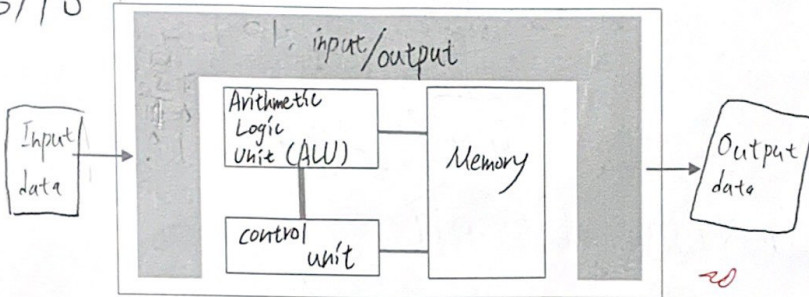 input/output
Input
data
Arithmetic
Logic
Unit (ALU)
Memory
control
unit
Output
data